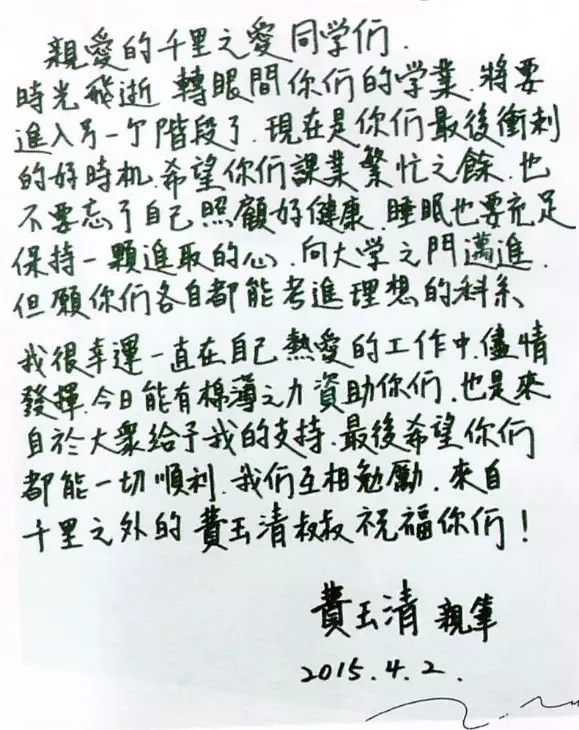 親愛的千里之愛同学们.
時光飛逝 轉眼間你们的学業.將要
進入另一个階段了.現在是你们最後衝刺
的好時机.希望你们課業繁忙之餘.也
不要忘了自己照顧好健康.睡眠也要充足
保持一顆進取的心.向大学之門邁進.
但願你们各自都能考進理想的科系、
我很幸運一直在自己熱愛的工作中.儘情
發揮.今日能有棉薄之力資助你们.也是來
自於大衆給予我的支持.最後希望你们
都能一切順利.我们互相勉勵.來自
千里之外的費玉清叔叔祝福你们!
費玉清 親筆
2015.4.2.